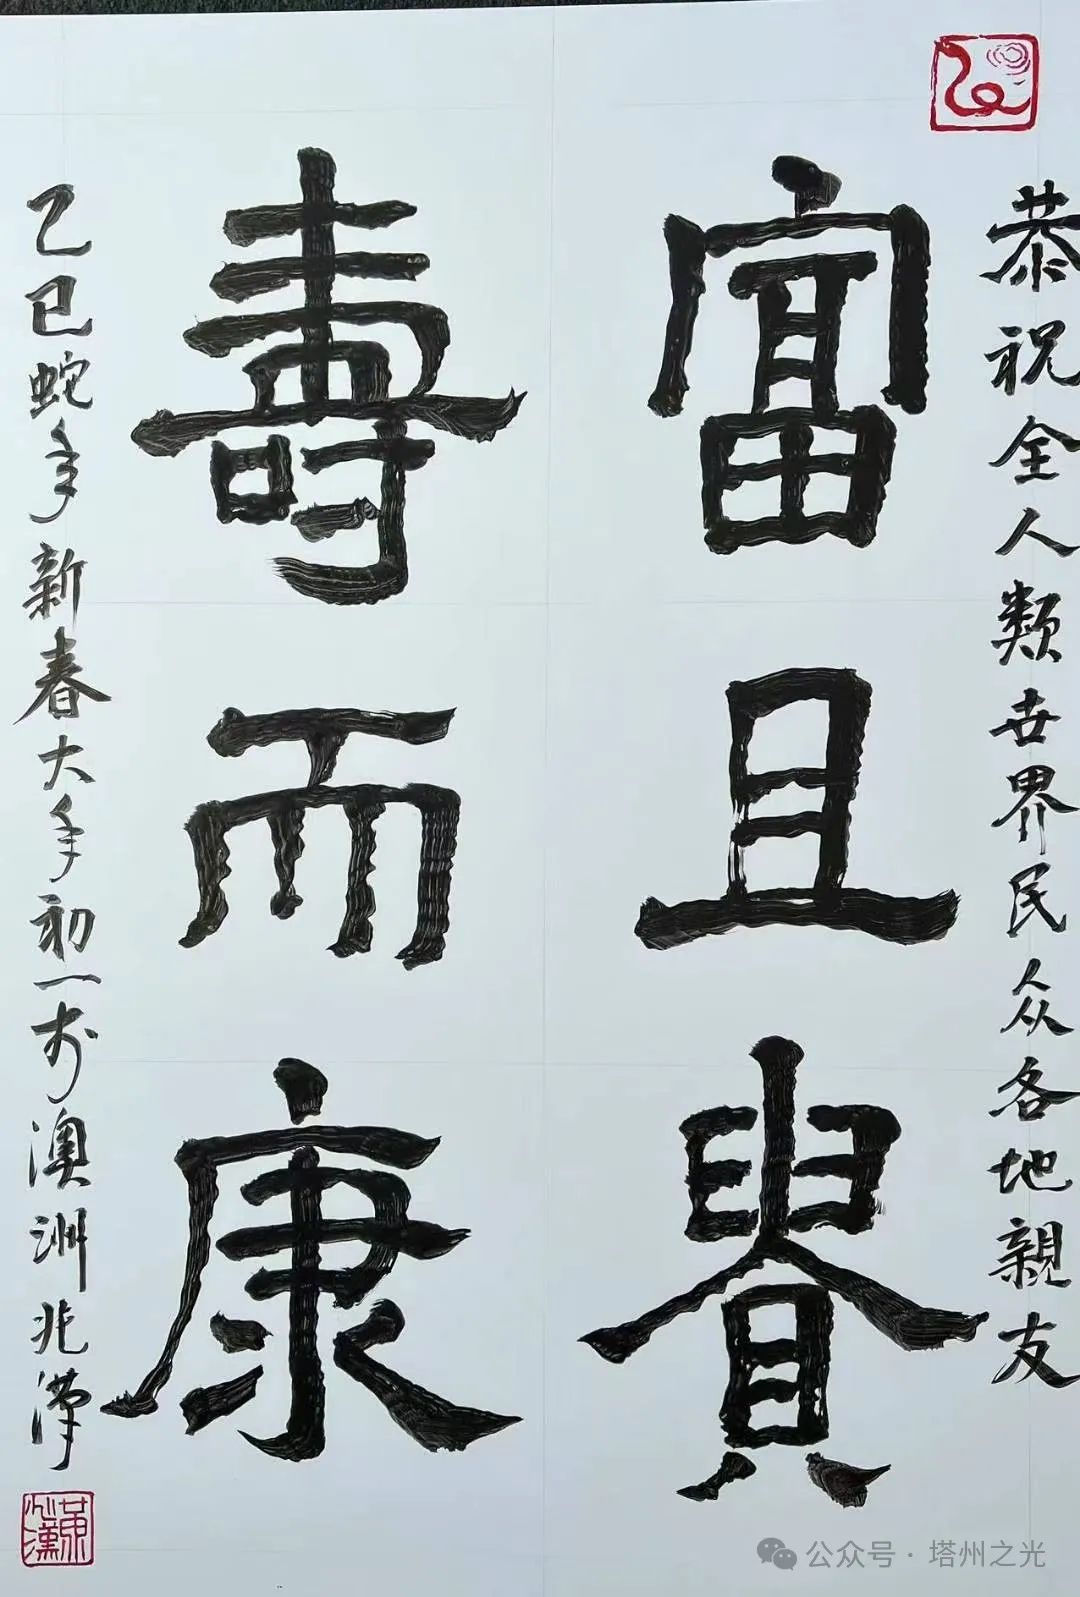 恭祝全人类世界民众各地親友
富且貴
壽而康
乙巳蛇年新春大年初一於澳洲兆漢
黄兆漢
公众号·塔州之光